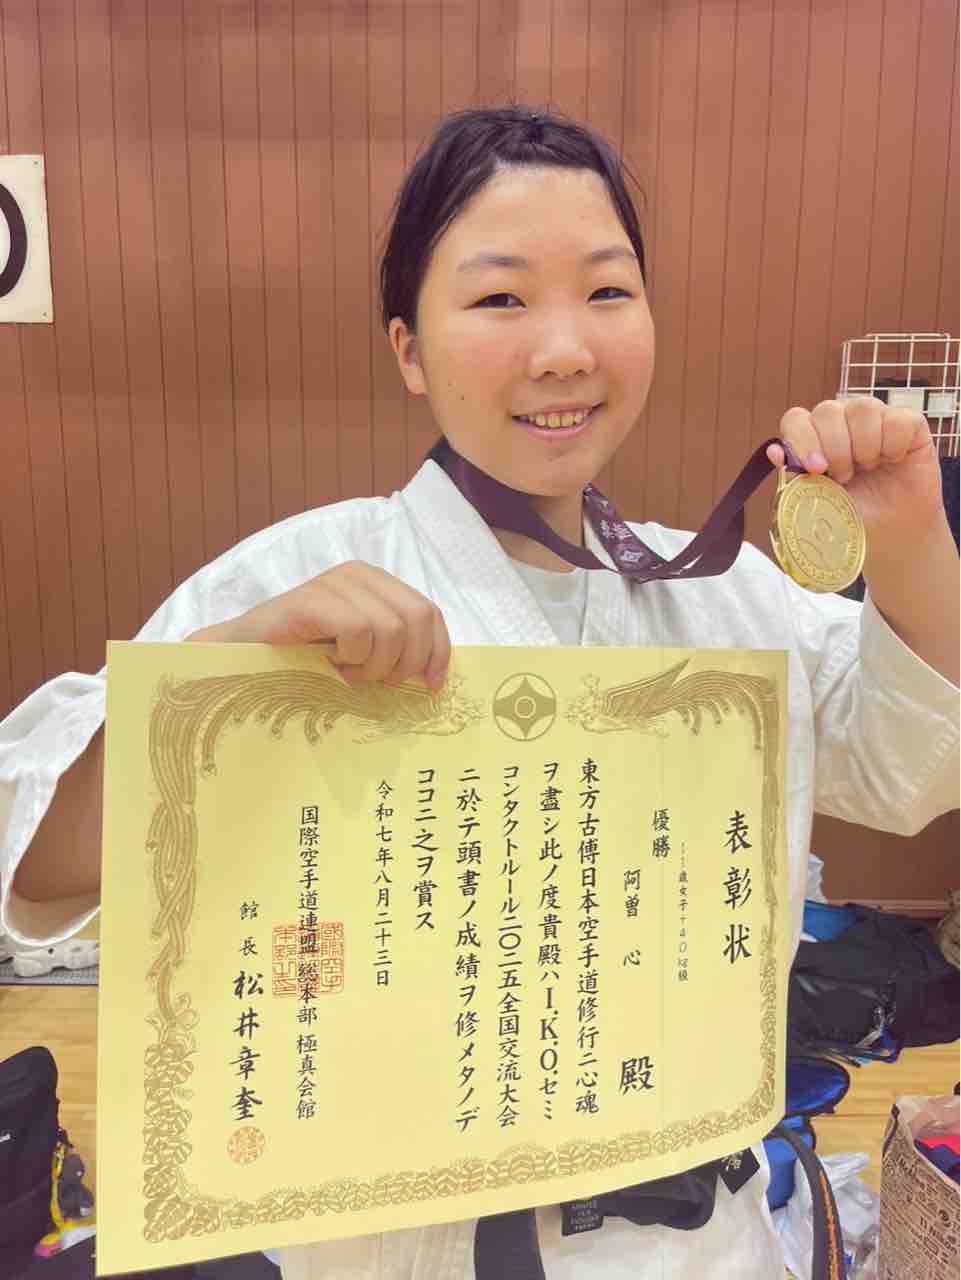 表彰状
11歳女子+40kg級
優勝
阿曽 心 殿
東方古傳日本空手道修行ニ心魂
ヲ盡シ此ノ度貴殿ハI.K.O.セミ
コンタクトルール二〇二五全国交流大会
ニ於テ頭書ノ成績ヲ修メタノデ
ココニ之ヲ賞ス
令和七年八月二十三日
国際空手道連盟総本部 極真会館
館長 松井章奎